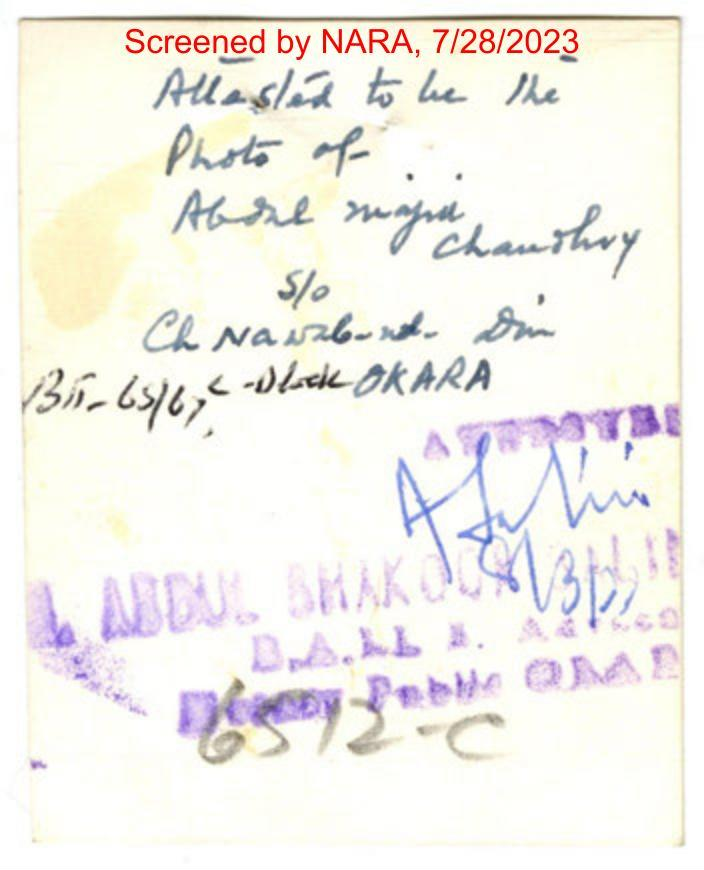 Screened by NARA, 7/28/2023
Attested to be the
Photo of
Abdul majid
Chaudhry
S/o
Ch Nawab-ud- Din
C-Block OKARA
ATTESTED
ABDUL SHAKOOR
B.A.LL B.
Public
6512-C